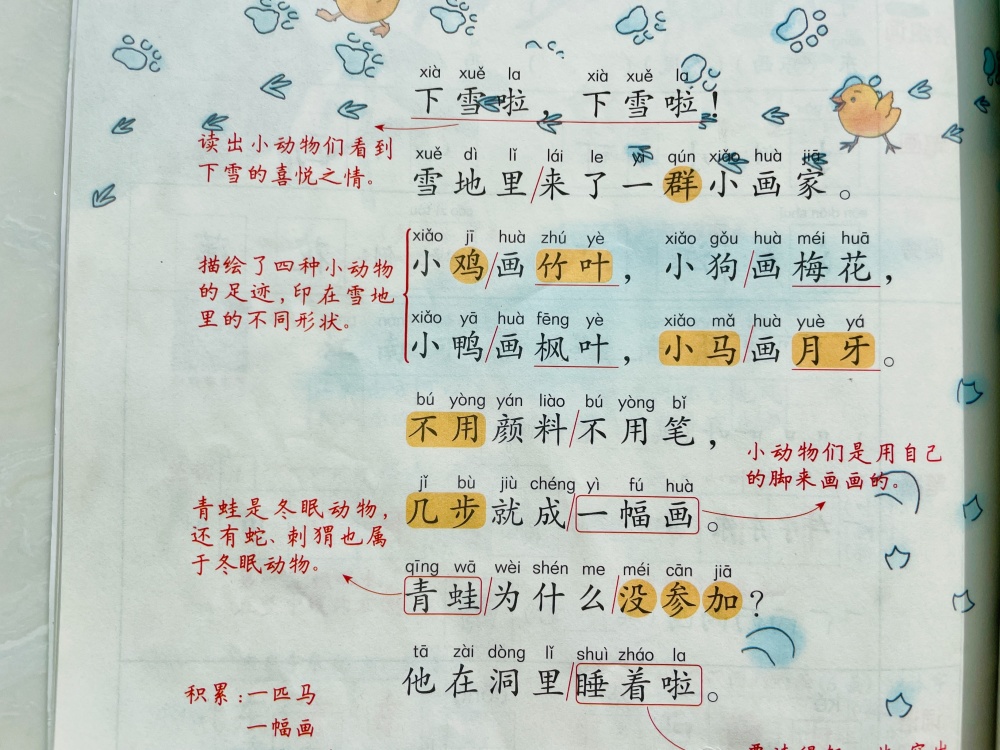 xià xuě la xià xuě la
下雪啦，下雪啦！
读出小动物们看到
下雪的喜悦之情。
xuě dì lǐ lái le yì qún xiǎo huà jiā
雪地里/来了一群小画家。
描绘了四种小动物
的足迹，印在雪地
里的不同形状。
xiǎo jī huà zhú yè xiǎo gǒu huà méi huā
小鸡/画竹叶，小狗/画梅花，
xiǎo yā huà fēng yè xiǎo mǎ huà yuè yá
小鸭/画枫叶，小马/画月牙。
bú yòng yán liào bú yòng bǐ
不用颜料/不用笔，
小动物们是用自己
的脚来画画的。
jǐ bù jiù chéng yì fú huà
几步就成/一幅画。
青蛙是冬眠动物，
还有蛇、刺猬也属
于冬眠动物。
qīng wā wèi shén me méi cān jiā
青蛙/为什么/没参加？
tā zài dòng lǐ shuì zháo la
他在洞里/睡着啦。
积累：一匹马
一幅画